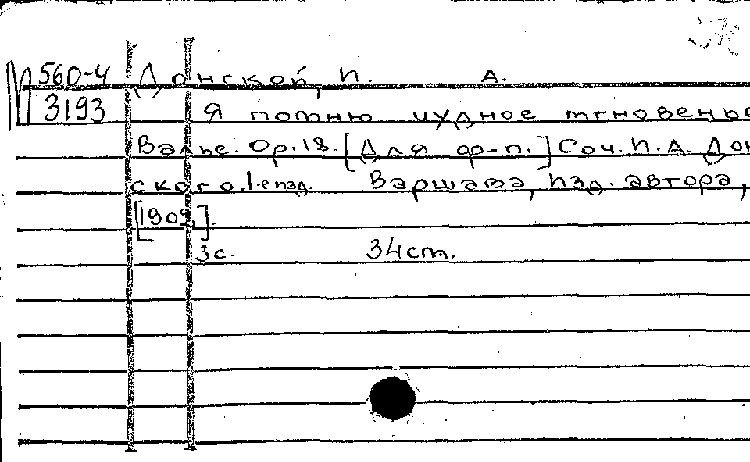 560-4 Донской, П. А.
3193 Я помню чудное мгновенье
Вальс. Ор.18. [Для ф-п.] Соч. П. А. Дон
ского. 1-е изд. Варшава, изд. автора,
[1909].
3с. 34 cm.